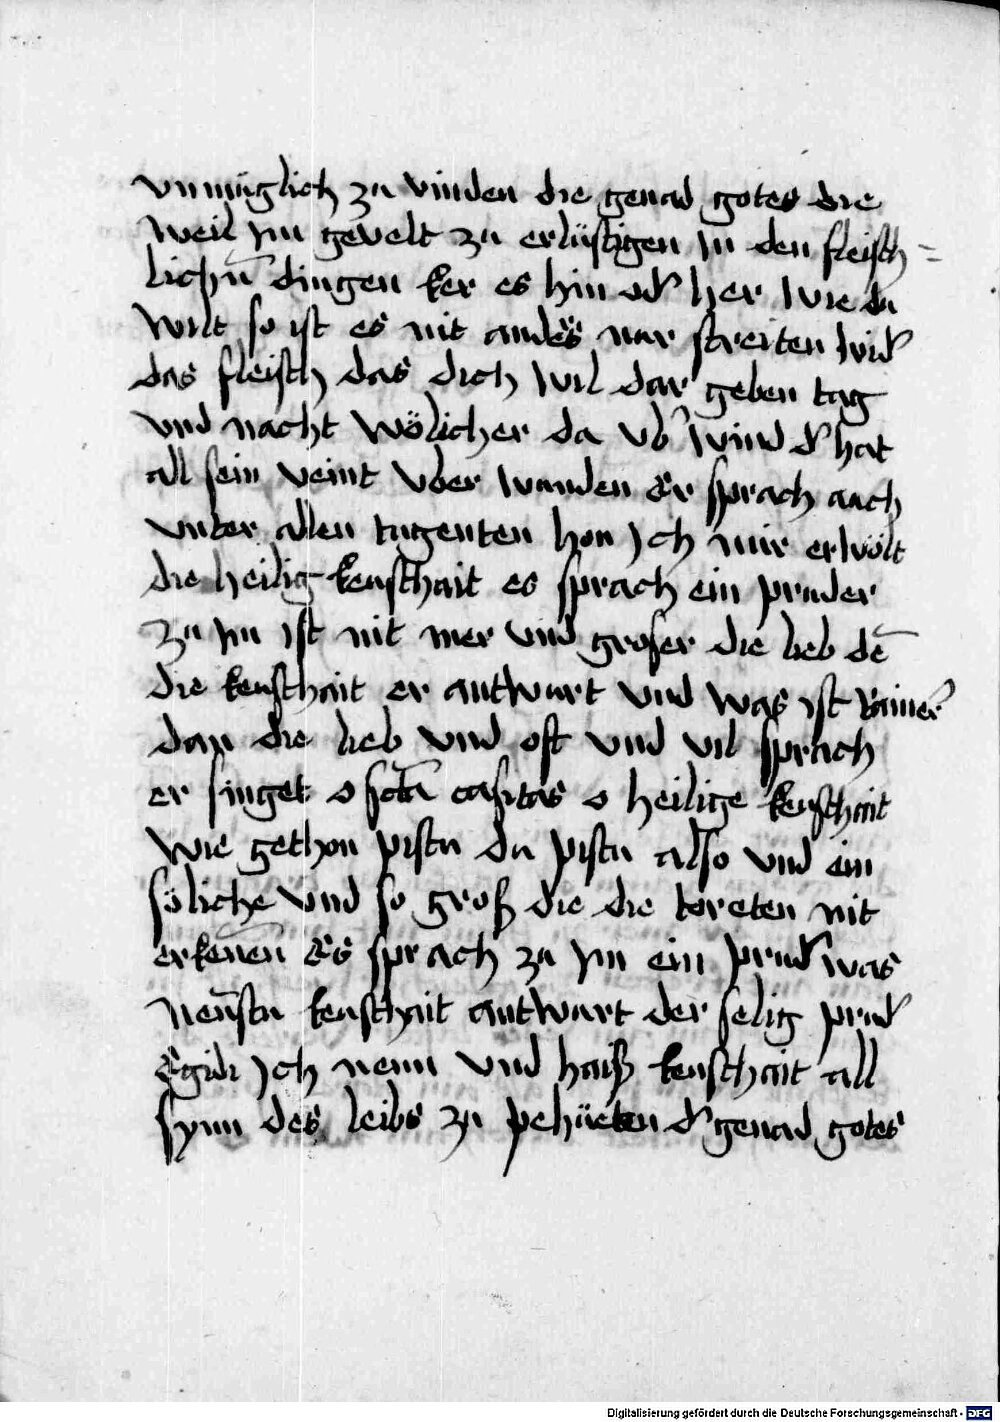 vnmüglich zu vinden die genad gotes die
weil ym gevelt zu erlüstigen in den fleisch =
lichn̄ dingen ker es hin od' her wie du
wilt so ist es nit anders nur streiten wid'
das fleisch das dich wil dar geben tag
vnd nacht wölicher da vb' wind d' hat
all sein veint vber wunden Er sprach auch
vnter allen tugenten hon Ich mir erwölt
die heilig keuschait es sprach ein pruder
zu ym ist nit mer vnd groser die lieb dē
die keuschait er antwurt vnd was ist rainer
dan die lieb vnd oft vnd vil sprach
er singet o sctā casitas o heilige keuschait
wie gethon pistu du pistu also vnd ein
söliche vnd so groß die die toreten nit
erkenen Es sprach zu ym ein prud' was
nen̄stu keuschait antwurt der selig prud'
Egidi Ich nenn vnd haiß keuschait all
synn des leibs zu pehüeten d' genad gotes
Digitalisierung gefördert durch die Deutsche Forschungsgemeinschaft - DFG